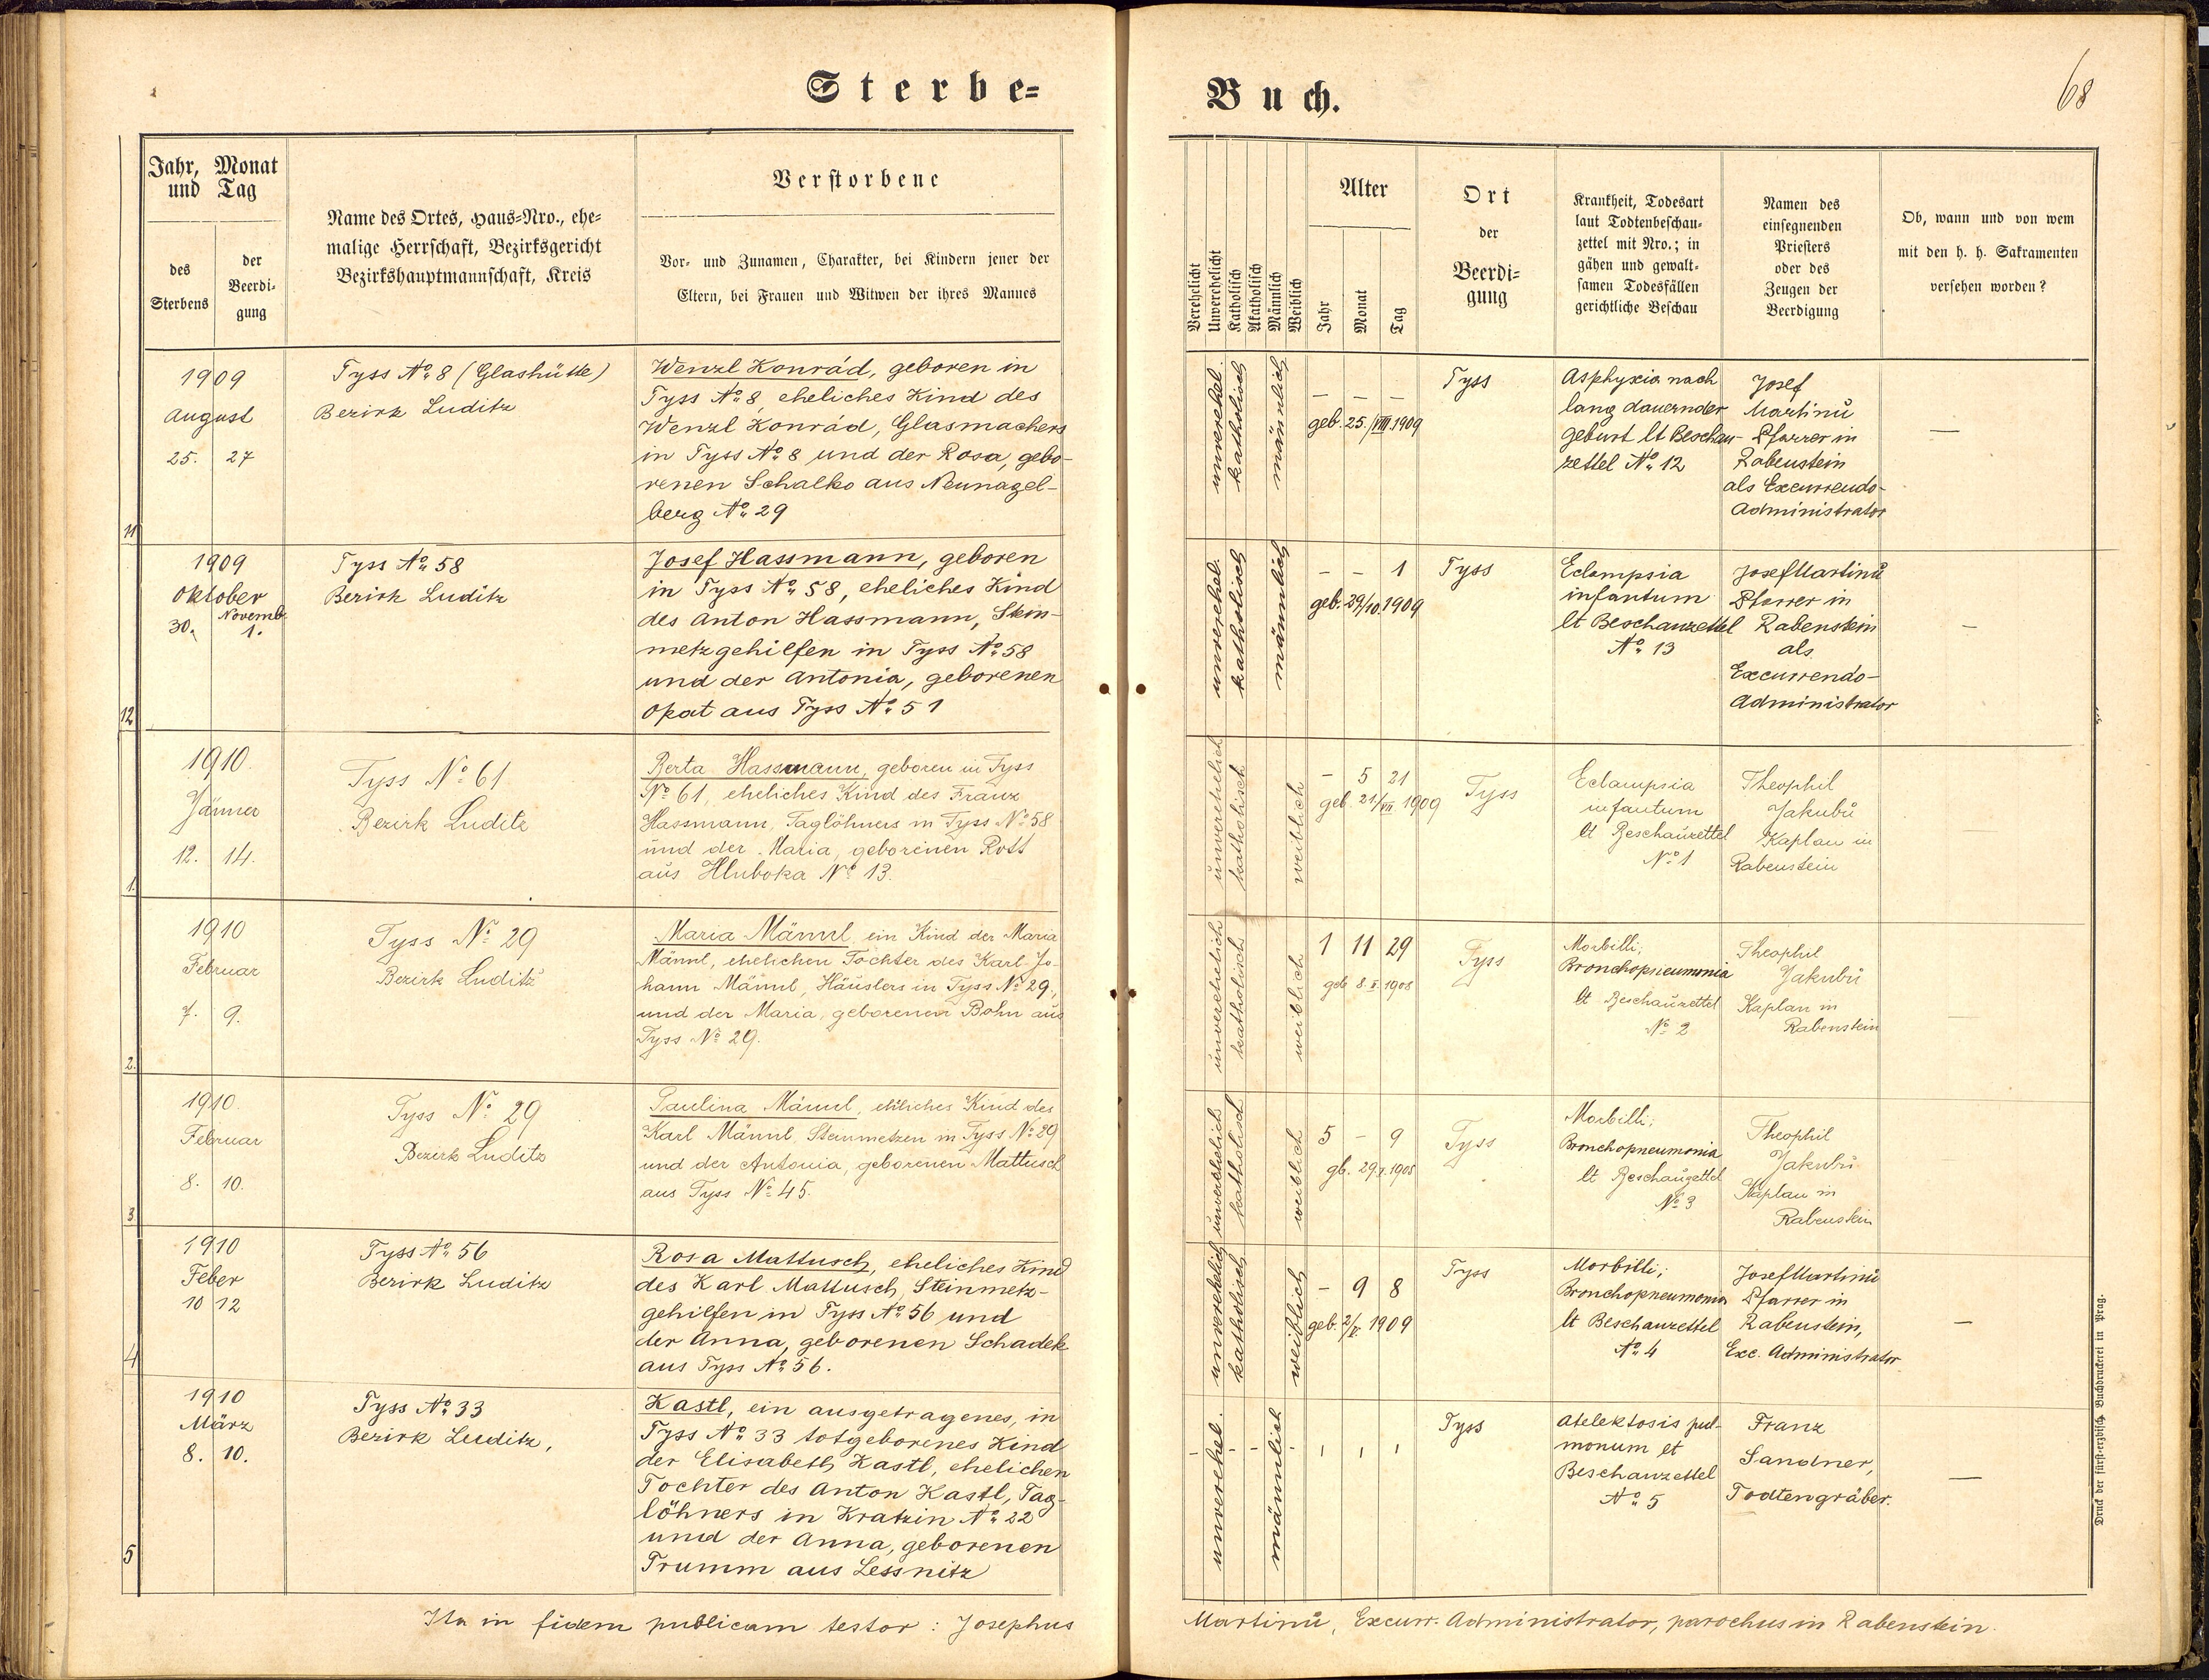 Sterbe-
Jahr, Monat
und Tag
des
Sterbens
der
Beerdi-
gung
Name des Ortes, Haus-Nro., ehe-
malige Herrschaft, Bezirksgericht
Bezirkshauptmannschaft, Kreis
Verstorbene
Vor- und Zunamen, Charakter, bei Kindern jener der
Eltern, bei Frauen und Witwen der ihres Mannes
11
1909
August
25. 27
Tyss No 8 (Glashütte)
Bezirk Luditz
Wenzl Konrád, geboren in
Tyss No 8, eheliches Kind des
Wenzl Konrád, Glasmachers
in Tyss No 8 und der Rosa, gebo-
renen Schalko aus Neunagel-
berg No 29
12
1909
Oktober
Novemb.
30. 1.
Tyss No 58
Bezirk Luditz
Josef Hassmann, geboren
in Tyss No 58, eheliches Kind
des Anton Hassmann, Stein-
metzgehilfen in Tyss No 58
und der Antonia, geborenen
Opat aus Tyss No 51
1.
1910.
Jänner
12. 14.
Tyss No 61
Bezirk Luditz
Berta Hassmann, geboren in Tyss
No 61, eheliches Kind des Franz
Hassmann, Taglöhners in Tyss No 58
und der Maria, geborenen Rott
aus Hluboka No 13.
2.
1910
Februar
7. 9.
Tyss No 29
Bezirk Luditz
Maria Männl, ein Kind der Maria
Männl, ehelichen Tochter des Karl Jo-
hann Männl, Häuslers in Tyss No 29.,
und der Maria, geborenen Bohn aus
Tyss No 29.
3
1910.
Februar
8. 10.
Tyss No 29
Bezirk Luditz
Paulina Männl, eheliches Kind des
Karl Männl, Steinmetzen in Tyss No 29
und der Antonia, geborenen Mattusch
aus Tyss No 45.
4
1910
Feber
10 12
Tyss No 56
Bezirk Luditz
Rosa Mattusch, eheliches Kind
des Karl Mattusch, Steinmetz-
gehilfen in Tyss No 56 und
der Anna, geborenen Schadek
aus Tyss No 56.
5
1910
März
8. 10.
Tyss No 33
Bezirk Luditz,
Kastl, ein ausgetragenes, in
Tyss No 33 totgeborenes Kind
der Elisabeth Kastl, ehelichen
Tochter des Anton Kastl, Tag-
löhners in Kratzin No 22
und der Anna, geborenen
Trumm aus Lessnitz
Ita in fidem publicam testor: Josephus
Buch.
68
Verehelicht
Unverehelicht
Katholisch
Akatholisch
Männlich
Weiblich
Alter
Jahr
Monat
Tag
Ort
der
Beerdi-
gung
Krankheit, Todesart
laut Todtenbeschau-
zettel mit Nro.; in
gähen und gewalt-
samen Todesfällen
gerichtliche Beschau
Namen des
einsegnenden
Priesters
oder des
Zeugen der
Beerdigung
Ob, wann und von wem
mit den h. h. Sakramenten
versehen worden?
unverehel.
katholisch
männlich
– – –
geb. 25./VIII.1909
Tyss
Asphyxia nach
lang dauernder
Geburt lt Beschau-
zettel No 12
Josef
Martinů
Pfarrer in
Rabenstein
als Excurrendo-
Administrator
—
unverehel.
katholisch
männlich
– – 1
geb. 29/10.1909
Tyss
Eclampsia
infantum
lt Beschauzettel
No 13
Josef Martinů
Pfarrer in
Rabenstein
als
Excurrendo-
Administrator
–
unverehelich
katholisch
weiblich
– 5 21
geb. 21/VII 1909
Tyss
Eclampsia
infantum
lt Beschauzettel
No 1
Theophil
Jakubů
Kaplan in
Rabenstein
—
unverehelich
katholisch
weiblich
1 11 29
geb 8. 1908
Tyss
Morbilli;
Bronchopneumonia
lt Beschauzettel
No 2
Theophil
Jakubů
Kaplan in
Rabenstein
—
unverehelich
katholisch
weiblich
5 – 9
gb. 29. 1905
Tyss
Morbilli;
Bronchopneumonia
lt Beschauzettel
No 3
Theophil
Jakubů
Kaplan in
Rabenstein
unverehelich
katholisch
weiblich
– 9 8
geb. 2/V. 1909
Tyss
Morbilli;
Bronchopneumonia
lt Beschauzettel
No 4
Josef Martinů
Pfarrer in
Rabenstein,
Exc. Administrator
—
unverehel.
männlich
Tyss
Atelektosis pul-
monum lt
Beschauzettel
No 5
Franz
Sandner,
Todtengräber.
—
Martinů, Excurr. Administrator, parochus in Rabenstein.
Druck der fürst-erzbisch. Buchdruckerei in Prag.